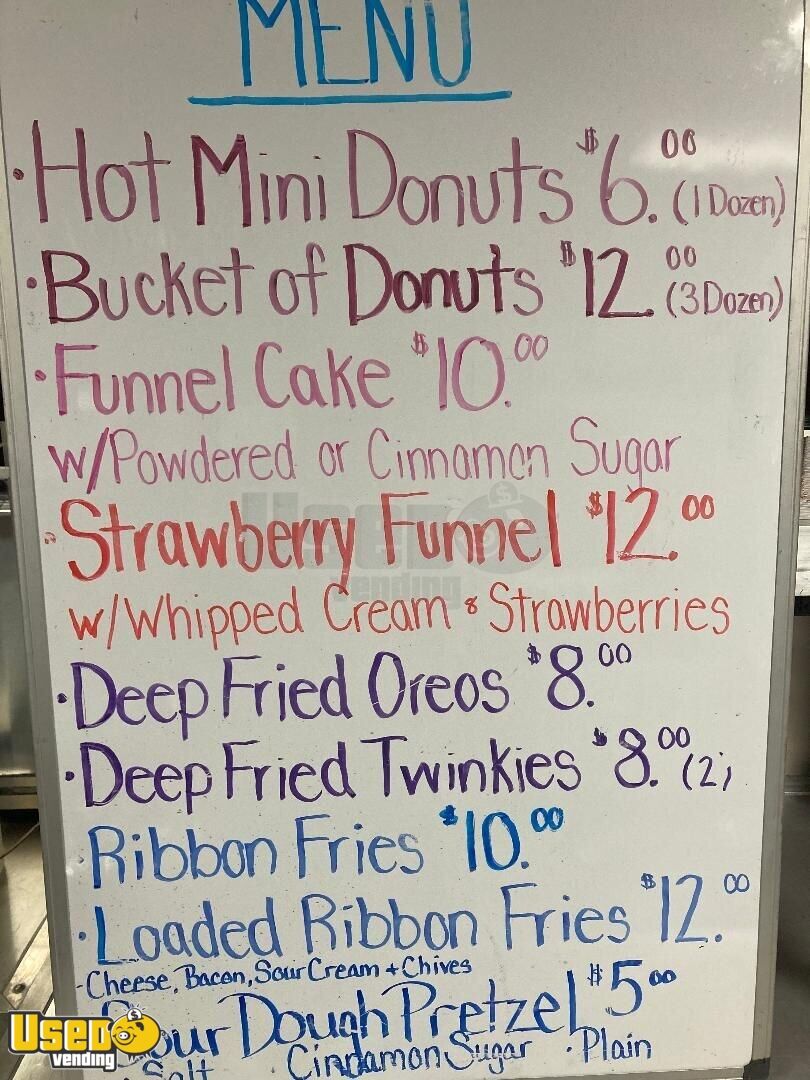 MENU
• Hot Mini Donuts $6.00 (1 Dozen)
• Bucket of Donuts $12.00 (3 Dozen)
• Funnel Cake $10.00
w/Powdered or Cinnamon Sugar
• Strawberry Funnel $12.00
w/Whipped Cream & Strawberries
• Deep Fried Oreos $8.00
• Deep Fried Twinkies $8.00 (2)
• Ribbon Fries $10.00
• Loaded Ribbon Fries $12.00
- Cheese, Bacon, Sour Cream + Chives
Sour Dough Pretzel $5.00
• Salt • Cinnamon Sugar • Plain
Used vending
USED vending